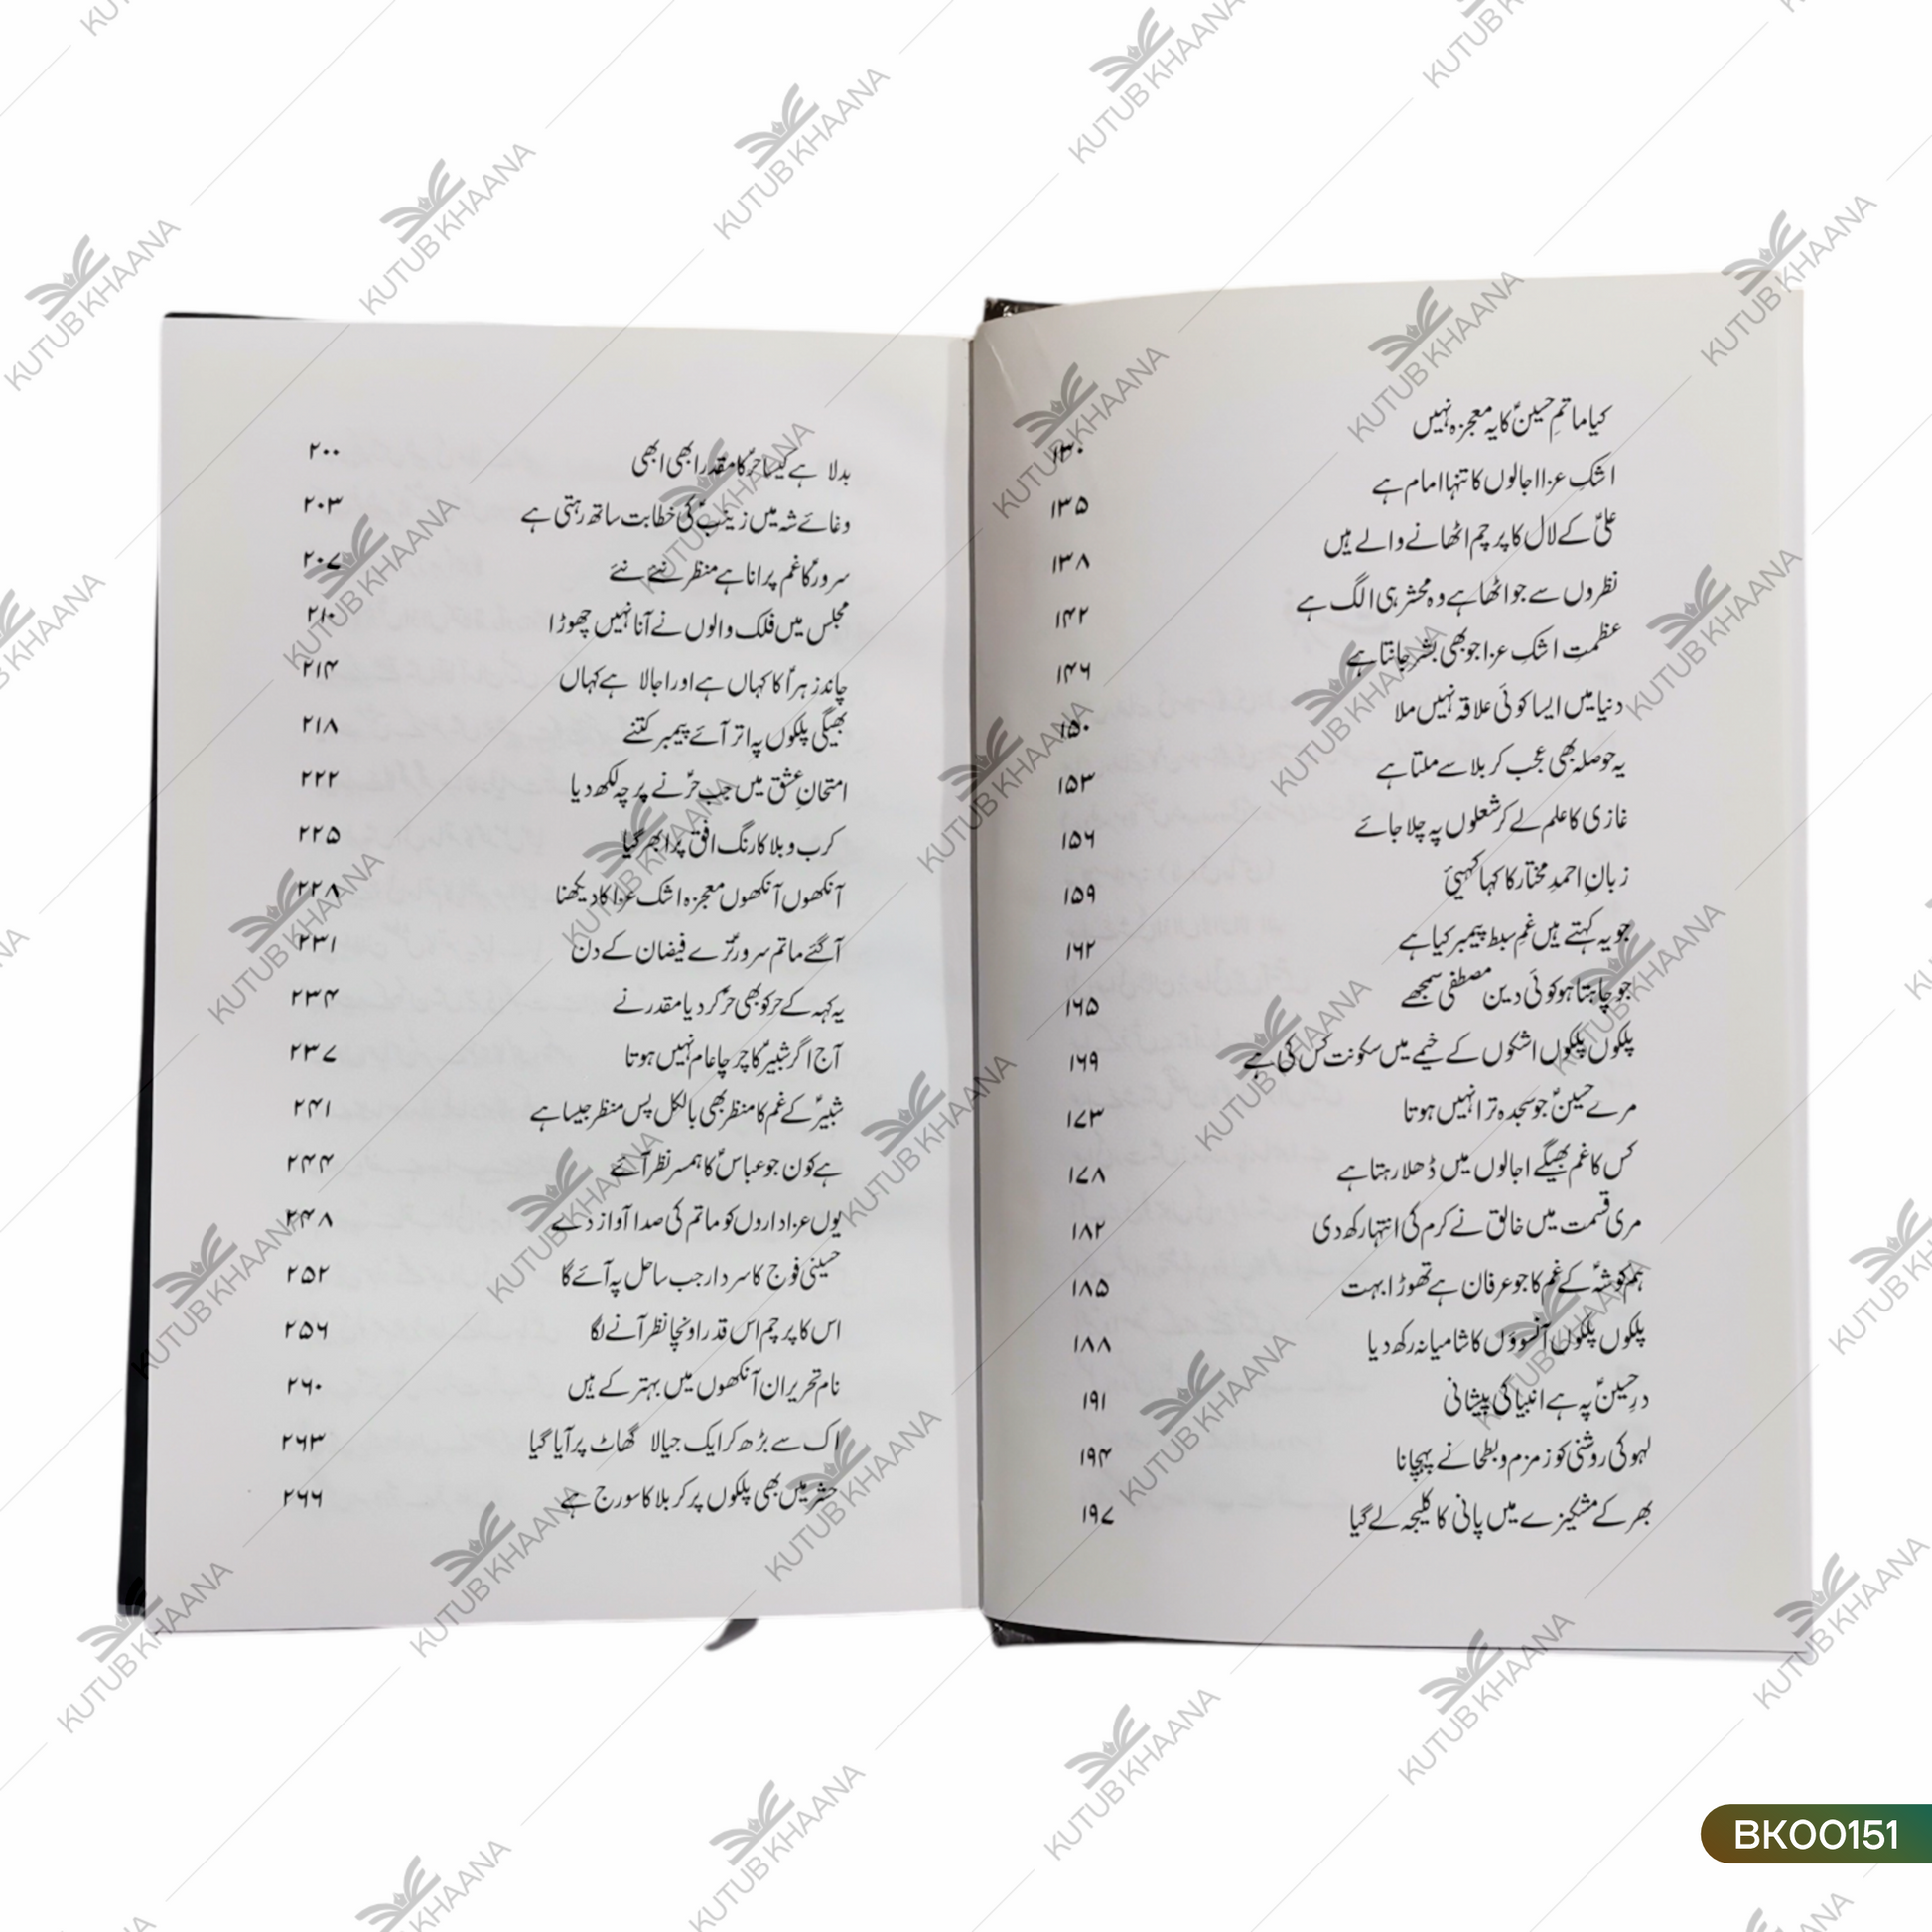 کیا ماتمِ حسینؑ کا یہ معجزہ نہیں ۱۳۰
اشکِ عزا اجالوں کا تنہا امام ہے ۱۳۵
علیؑ کے لال کا پرچم اٹھانے والے ہیں ۱۳۸
نظروں سے جو اٹھا ہے وہ محشر ہی الگ ہے ۱۴۲
عظمتِ اشکِ عزا جو بھی بشر جانتا ہے ۱۴۶
دنیا میں ایسا کوئی علاقہ نہیں ملا ۱۵۰
یہ حوصلہ بھی عجب کربلا سے ملتا ہے ۱۵۳
غازی کا علم لے کر شعلوں پہ چلا جائے ۱۵۶
زبانِ احمدِ مختار کا کہا کہیئ ۱۵۹
جو یہ کہتے ہیں غمِ سبط پیمبر کیا ہے ۱۶۲
جو چاہتا ہو کوئی دین مصطفی سمجھے ۱۶۵
پلکوں پلکوں اشکوں کے خیمے میں سکونت کس کی ہے ۱۶۹
مرے حسینؑ جو سجدہ ترا نہیں ہوتا ۱۷۳
کس کا غم بھیگے اجالوں میں ڈھلا رہتا ہے ۱۷۸
مری قسمت میں خالق نے کرم کی انتہا رکھ دی ۱۸۲
ہم کو شہؑ کے غم کا جو عرفان ہے تھوڑا بہت ۱۸۵
پلکوں پلکوں آنسوؤں کا شامیانہ رکھ دیا ۱۸۸
درِ حسینؑ پہ ہے انبیا کی پیشانی ۱۹۱
لہو کی روشنی کو زمزم و بطحا نے پہچانا ۱۹۴
بھر کے مشکیزے میں پانی کا کلیجہ لے گیا ۱۹۷
بدلا ہے کیسا حرؑ کا مقدر ابھی ابھی ۲۰۰
وغائے شہ میں زینبؑ کی خطابت ساتھ رہتی ہے ۲۰۳
سرورؑ کا غم پرانا ہے منظر نئے نئے ۲۰۷
مجلس میں فلک والوں نے آنا نہیں چھوڑا ۲۱۰
چاند زہراؑ کا کہاں ہے اور اجالا ہے کہاں ۲۱۴
بھیگی پلکوں پہ اتر آئے پیمبر کتنے ۲۱۸
امتحانِ عشق میں جب حرؑ نے پرچہ لکھ دیا ۲۲۲
کرب و بلا کا رنگ افق پر ابھر گیا ۲۲۵
آنکھوں آنکھوں معجزہ اشک عزا کا دیکھنا ۲۲۸
آ گئے ماتم سرورؑ ترے فیضان کے دن ۲۳۱
یہ کہہ کے حر کو بھی حرؑ کر دیا مقدر نے ۲۳۴
آج اگر شبیرؑ کا چرچا عام نہیں ہوتا ۲۳۷
شبیرؑ کے غم کا منظر بھی بالکل پس منظر جیسا ہے ۲۴۱
ہے کون جو عباسؑ کا ہمسر نظر آئے ۲۴۴
یوں عزاداروں کو ماتم کی صدا آواز دے ۲۴۸
حسینی فوج کا سردار جب ساحل پہ آئے گا ۲۵۲
اس کا پرچم اس قدر اونچا نظر آنے لگا ۲۵۶
نام تحریر ان آنکھوں میں بہتر کے ہیں ۲۶۰
اک سے بڑھ کر ایک جیالا گھاٹ پر آیا گیا ۲۶۳
حشر میں بھی پلکوں پر کربلا کا سورج ہے ۲۶۶
KUTUB KHAANA
BK00151